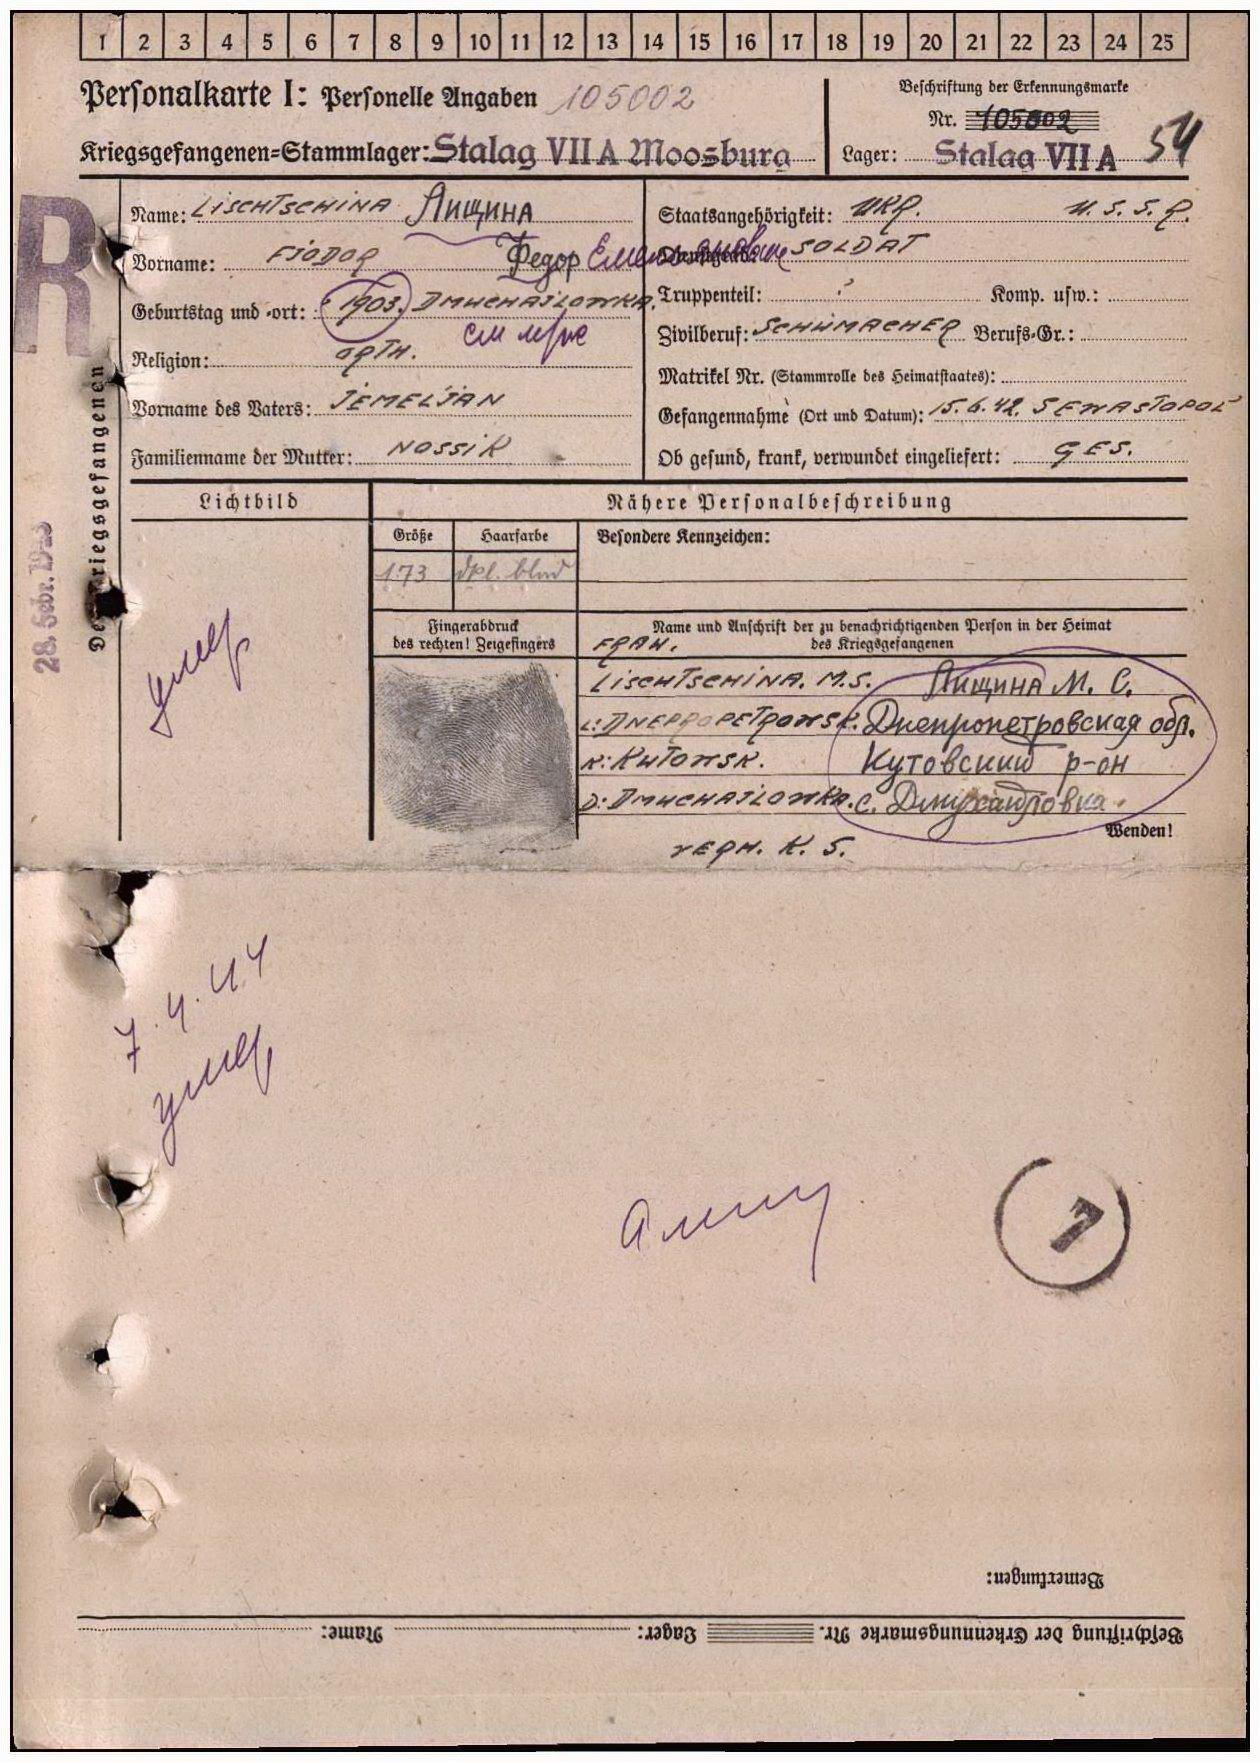 1 2 3 4 5 6 7 8 9 10 11 12 13 14 15 16 17 18 19 20 21 22 23 24 25
Personalkarte I: Personelle Angaben 105002
Kriegsgefangenen=Stammlager: Stalag VII A Moosburg
Beschriftung der Erkennungsmarke
Nr. 105002
Lager: Stalag VII A 54
R
Des Kriegsgefangenen
28. Febr. 1943
Name: LISCHTSCHINA Лищина
Vorname: FJODOR Федор Емельянович
Geburtstag und =ort: 1903. DMUCHAJLOWKA.
см
Religion: ORTH.
Vorname des Vaters: JEMELJAN
Familienname der Mutter: NOSSIK
Staatsangehörigkeit: UKR. U.S.S.R.
Dienstgrad: SOLDAT
Truppenteil: Komp. usw.:
Zivilberuf: SCHUMACHER Berufs=Gr.:
Matrikel Nr. (Stammrolle des Heimatstaates):
Gefangennahme (Ort und Datum): 15.6.42. SEWASTOPOL
Ob gesund, krank, verwundet eingeliefert: GES.
Lichtbild
умер
Nähere Personalbeschreibung
Größe Haarfarbe Besondere Kennzeichen:
173 dkl. blond
Fingerabdruck
des rechten! Zeigefingers
Name und Anschrift der zu benachrichtigenden Person in der Heimat
des Kriegsgefangenen
FRAU.
LISCHTSCHINA. M.S. Лищина М. С.
DNEPROPETROWSK. Днепропетровская обл.
K: KUTOWSK. Кутовский р-он
D: DMUCHAJLOWKA. с. Дмухайловка.
Wenden!
K. S.
7.4.44
умер
7
Bemerkungen:
Beschriftung der Erkennungsmarke Nr. Lager: Name: